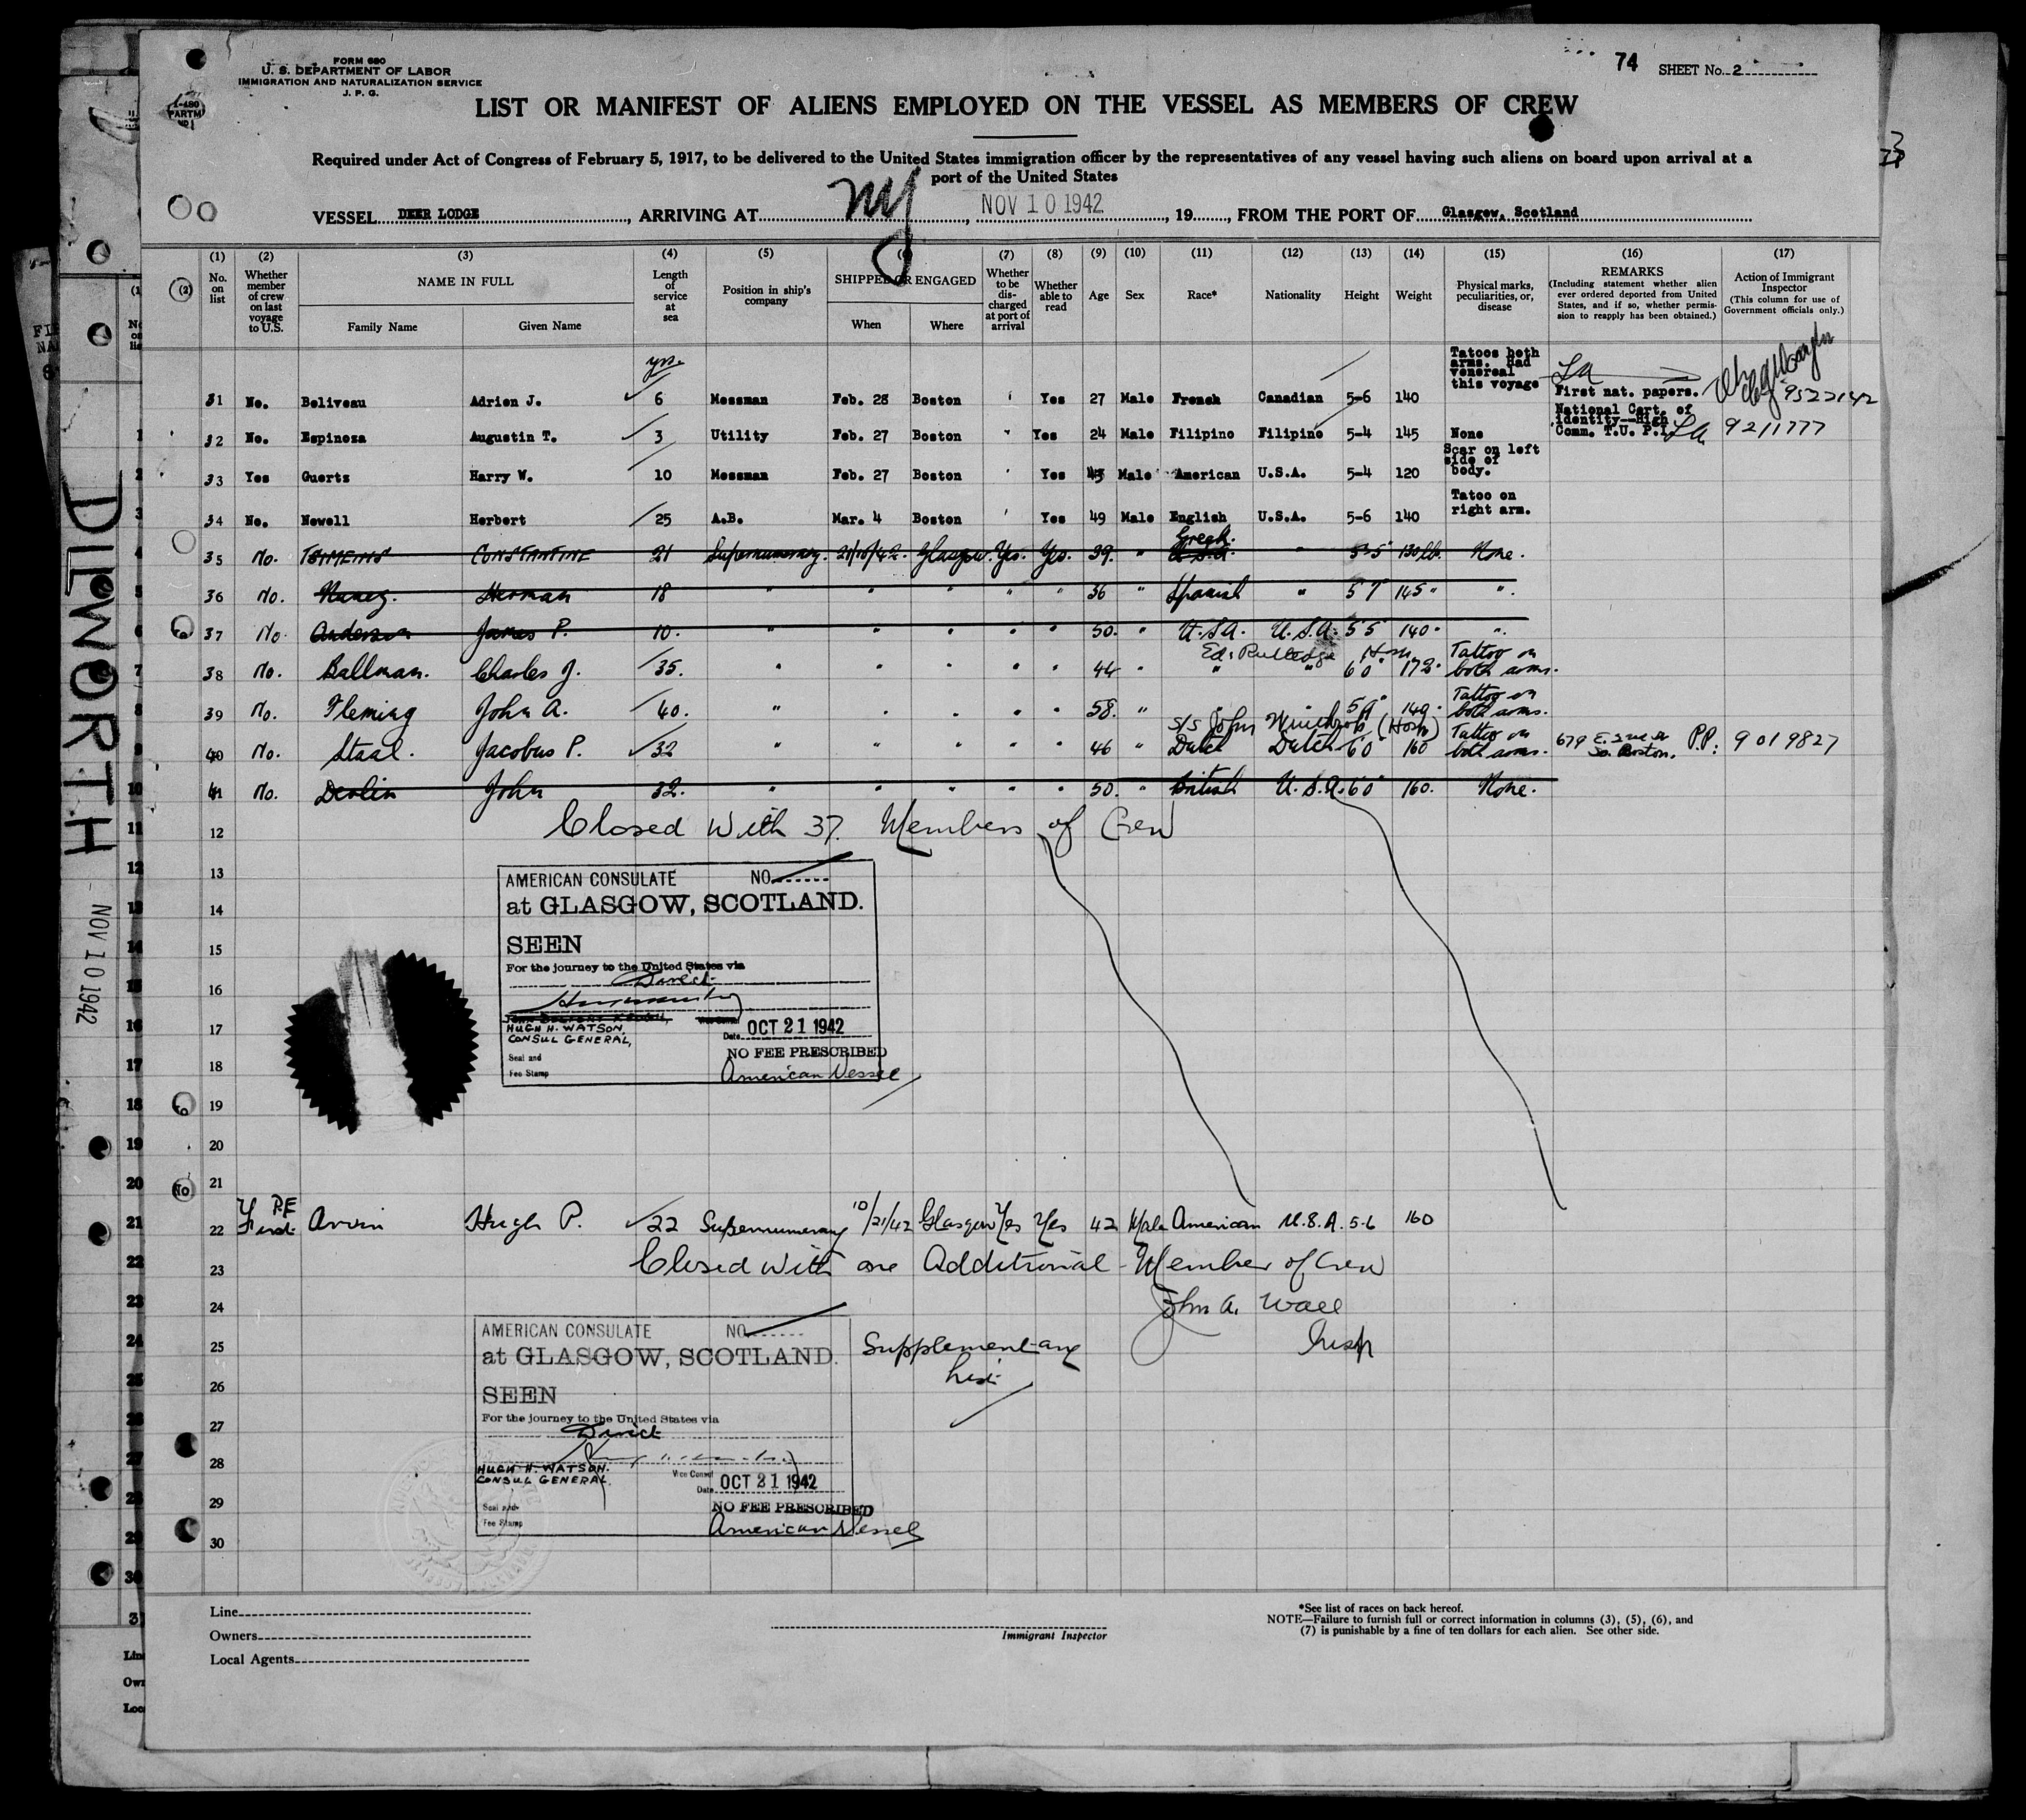 FORM 680
U. S. DEPARTMENT OF LABOR
IMMIGRATION AND NATURALIZATION SERVICE
J. P. G.
74 SHEET No. 2
LIST OR MANIFEST OF ALIENS EMPLOYED ON THE VESSEL AS MEMBERS OF CREW
Required under Act of Congress of February 5, 1917, to be delivered to the United States immigration officer by the representatives of any vessel having such aliens on board upon arrival at a
port of the United States
VESSEL DEER LODGE, ARRIVING AT NY, NOV 10 1942, 19, FROM THE PORT OF Glasgow, Scotland
(1) No. on list
(2) Whether member of crew on last voyage to U.S.
(3) NAME IN FULL
Family Name
Given Name
(4) Length of service at sea
(5) Position in ship's company
(6) SHIPPED OR ENGAGED
When
Where
(7) Whether to be discharged at port of arrival
(8) Whether able to read
(9) Age
(10) Sex
(11) Race*
(12) Nationality
(13) Height
(14) Weight
(15) Physical marks, peculiarities, or, disease
(16) REMARKS
(Including statement whether alien ever ordered deported from United States, and if so, whether permission to reapply has been obtained.)
(17) Action of Immigrant Inspector
(This column for use of Government officials only.)
yrs.
31 No. Beliveau Adrien J. 6 Messman Feb. 28 Boston " Yes 27 Male French Canadian 5-6 140 Tatoos both arms. Had venereal this voyage First nat. papers.
32 No. Espinoza Augustin T. 3 Utility Feb. 27 Boston " Yes 24 Male Filipino Filipino 5-4 145 None National Cert. of identity--High Comm. T.U. P.I. 9211777
33 Yes Guertz Harry W. 10 Messman Feb. 27 Boston " Yes 43 Male American U.S.A. 5-4 120 Scar on left side of body.
34 No. Newell Herbert 25 A.B. Mar. 4 Boston " Yes 49 Male English U.S.A. 5-6 140 Tatoo on right arm.
35 No. CONSTANTINE 21 Supernumerary. 21/10/42. Glasgow. Yes. Yes. 39. " Greek. " 5'5" 130 lb. None.
36 No. Herman 18 " " " " " 36 " Spanish " 5'7" 145 " ".
37 No. Anderson James P. 10. " " " " " 50. " U.S.A. U.S.A. 5'5" 140 " ".
Ed: Rutledge
38 No. Ballman. Charles J. 35. " " " " " 44 " " " 6'0" 172 " Tattoo on both arms.
39 No. Fleming John A. 40. " " " " " 58. " 5'9" 140 " Tattoo on both arms.
S/S John Winthrop (Hosp)
40 No. Staal. Jacobus P. 32 " " " " " 46 " Dutch Dutch 6'0" 160 Tattoo on both arms. 679 E. 2nd St So. Boston. P.P: 9019827
41 No. Devlin John 32. " " " " " 50. " British U.S.A. 6'0" 160. None.
12 Closed with 37 Members of Crew
13
14
15
16
17
18
19
20
21
AMERICAN CONSULATE NO.
at GLASGOW, SCOTLAND.
SEEN
For the journey to the United States via
Direct
HUGH H. WATSON,
CONSUL GENERAL,
Date OCT 21 1942
Seal and
Fee Stamp
NO FEE PRESCRIBED
American Vessel
22 Arvin Hugh P. 22 Supernumerary 10/21/42 Glasgow Yes Yes 42 Male American U.S.A. 5-6 160
23 Closed with one Additional Member of Crew
24 John A. Wall
25 Insp
26
27
28
29
30
Supplementary
List
AMERICAN CONSULATE NO.
at GLASGOW, SCOTLAND.
SEEN
For the journey to the United States via
Direct
HUGH H. WATSON.
CONSUL GENERAL.
Vice Consul
Date OCT 21 1942
Seal and
Fee Stamp
NO FEE PRESCRIBED
American Vessel
Line
Owners
Local Agents
Immigrant Inspector
*See list of races on back hereof.
NOTE—Failure to furnish full or correct information in columns (3), (5), (6), and
(7) is punishable by a fine of ten dollars for each alien. See other side.
DILWORTH
NOV 10 1942